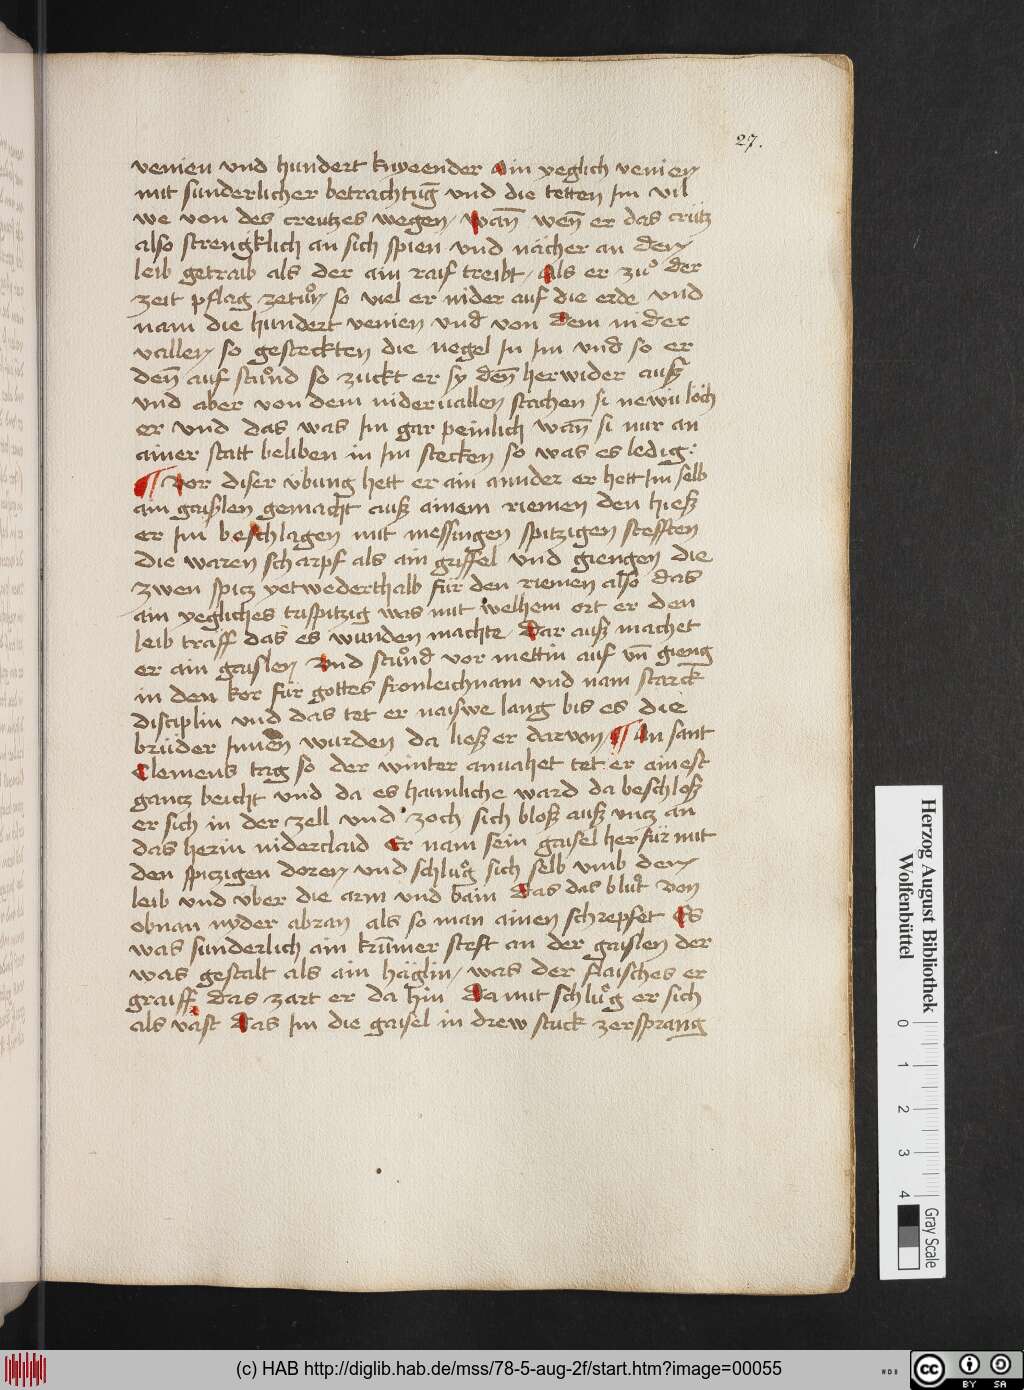 27.
venien vnd hundert knyeender Ain yeglich venien
mit sunderlicher betrachtūg vnd die tetten Im vil
we von des creutzes wegen / wan̄ wen̄ er das crütz
also strengklich an sich spien vnd nächer an den
leib getraib als der ain raif treibt / Als er zuͦ der
zeit pflag zetuͦn so viel er nider auf die erde vnd
nam die hundert venien vnd von dem nider
vallen so gesteckten die negel In Im vnd so er
den̄ auf stuͦnd so zuckt er sy den̄ herwider ausz
vnd aber von dem nidervallen stachen si newiu löch
er vnd das was Im gar peinlich wan̄ si nur an
ainer statt beliben in Im stecken so was es ledig :
¶ Vor diser übung hett er ain annder er hett Im selb
ain gaislen gemacht ausz ainem riemen den hiesz
er Im beschlagen mit messingen spitzigen stefften
die waren scharpf als ain griffel vnd giengen die
zwen spicz yetwederthalb für den riemen also das
ain yegliches trispitzig was mit welhem ort er den
leib traff das es wunden machte / Dar ausz machet
er ain gaislen Vnd stuͦnd vor mettin auf vn̄ gieng
in den kor für gottes fronleichnam vnd nam starck
disciplin vnd das tet er naiswe lang bis es die
brüder Innen wurden da liesz er darvon / ¶ An sant
Clemens tag so der winter anuahet tet er ainest
gantz beicht vnd da es haimliche ward da beschlosz
er sich in der zell vnd zoch sich blosz ausz vncz an
das herin niderclaid Er nam sein gaisel herfür mit
den spiczigen doren vnd schluͦg sich selb vmb den
leib vnd vber die arm vnd bain Das das bluͦt von
obnan nyder abran als so man ainen schrepfet Es
was sunderlich ain krūmer steft an der gaislen der
was gestalt als ain häglin / was der flaisches er
graiff das zart er da hin Damit schluͦg er sich
als vast Das Im die gaisel in drew stuck zersprang
Herzog August Bibliothek
Wolfenbüttel
0 1 2 3 4
Gray Scale
(c) HAB http://diglib.hab.de/mss/78-5-aug-2f/start.htm?image=00055
WDB
cc BY SA